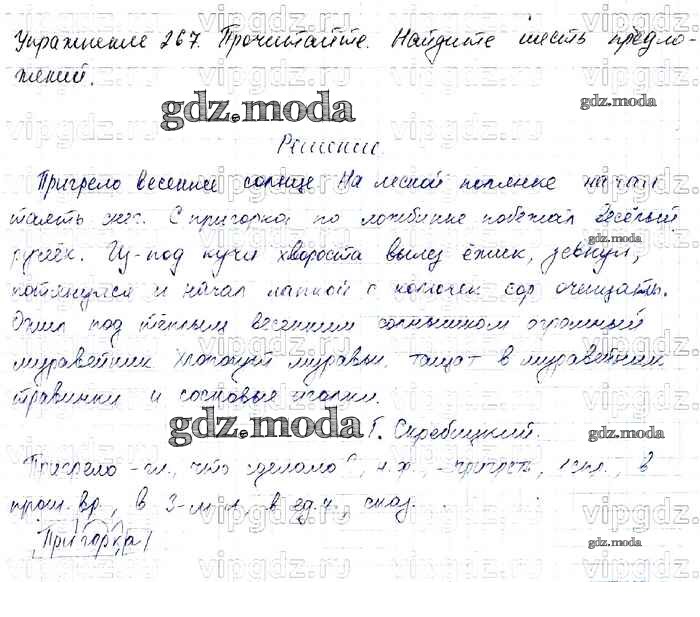 Упражнение 267. Прочитайте. Найдите шесть предло-
жений.
gdz.moda
gdz.moda
Решение
Пригрело весеннее солнце. На лесной полянке начал
таять снег. С пригорка, по ложбинке побежал весёлый
ручеёк. Из-под кучи хвороста вылез ёжик, зевнул,
потянулся и начал лапкой с колючек сор очищать.
Ожил под тёплым весенним солнышком огромный
муравейник. Хлопочут муравьи, тащат в муравейник
травинки и сосновые иголки.
gdz.moda
Г. Скребицкий.
gdz.moda
Пригрело - гл., что сделало?, н.ф. - пригреть, I спр., в
прош. вр., в 3-м л., в ед.ч., сказ.
Пригорка
gdz.moda
vipgdz.ru